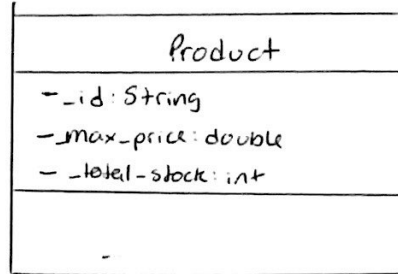 Product
- _id: String
- _max_price: double
- _total_stock: int